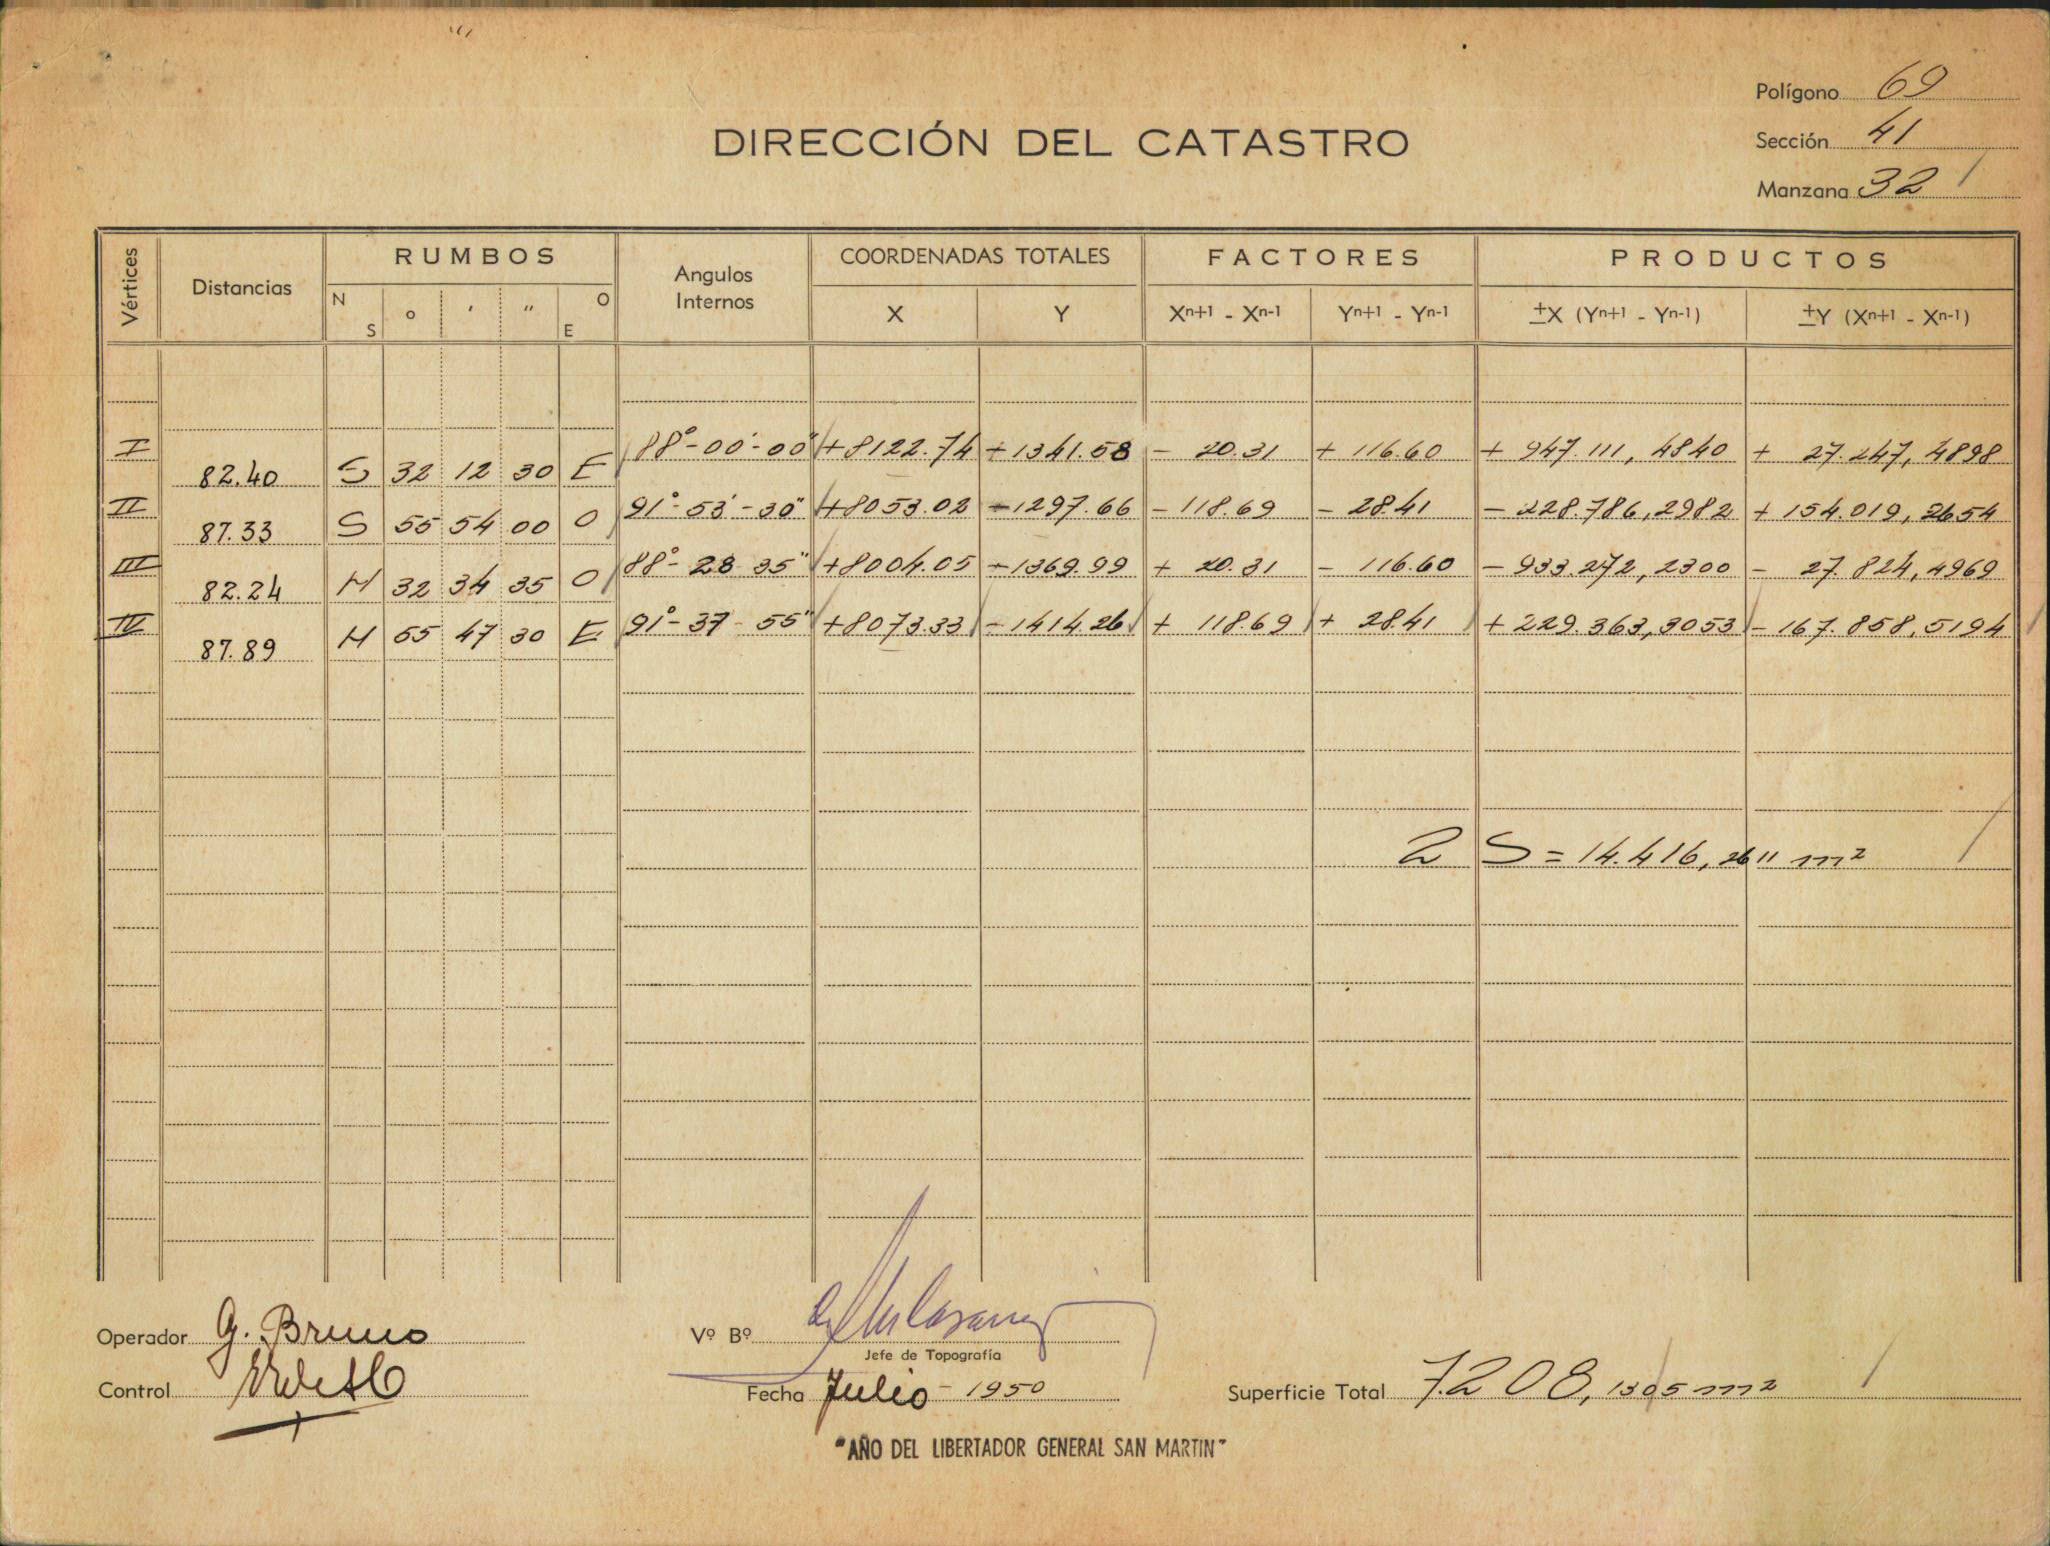 Polígono 69
DIRECCIÓN DEL CATASTRO
Sección 41
Manzana 32
Vértices Distancias RUMBOS N S o ' " O E Angulos Internos COORDENADAS TOTALES X Y FACTORES Xn+1 - Xn-1 Yn+1 - Yn-1 PRODUCTOS ±X (Yn+1 - Yn-1) ±Y (Xn+1 - Xn-1)
I 88°-00'-00" +8122.74 -1341.58 - 20.31 + 116.60 + 947.111,4840 + 27.247,4898
82.40 S 32 12 30 E
II 91°-53'-30" +8053.02 -1297.66 - 118.69 - 28.41 - 228.786,2982 + 154.019,2654
87.33 S 55 54 00 O
III 88°-28 35" +8004.05 -1369.99 + 20.31 - 116.60 - 933.272,2300 - 27.824,4969
82.24 N 32 34 35 O
IV 91°-37-55" +8073.33 -1414.26 + 118.69 + 28.41 + 229.363,3053 - 167.858,5194
87.89 N 55 47 30 E
2 S = 14.416,2611 m²
Operador G. Bruno
Vº Bº
Jefe de Topografía
Control
Fecha Julio - 1950
Superficie Total 7.208,1305 m²
"AÑO DEL LIBERTADOR GENERAL SAN MARTIN"